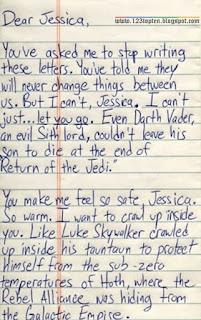 www.123topten.blogspot.com
Dear Jessica,
You've asked me to stop writing
these letters. You've told me they
will never change things between
us. But I can't, Jessica. I can't
just....let you go. Even Darth Vader,
an evil Sith lord, couldn't leave his
son to die at the end of
Return of the Jedi."
You make me feel so safe, Jessica.
So warm. I want to crawl up inside
you. Like Luke Skywalker crawled
up inside his tauntaun to protect
himself from the sub-zero
temperatures of Hoth, where the
Rebel Alliance was hiding from
the Galactic Empire.